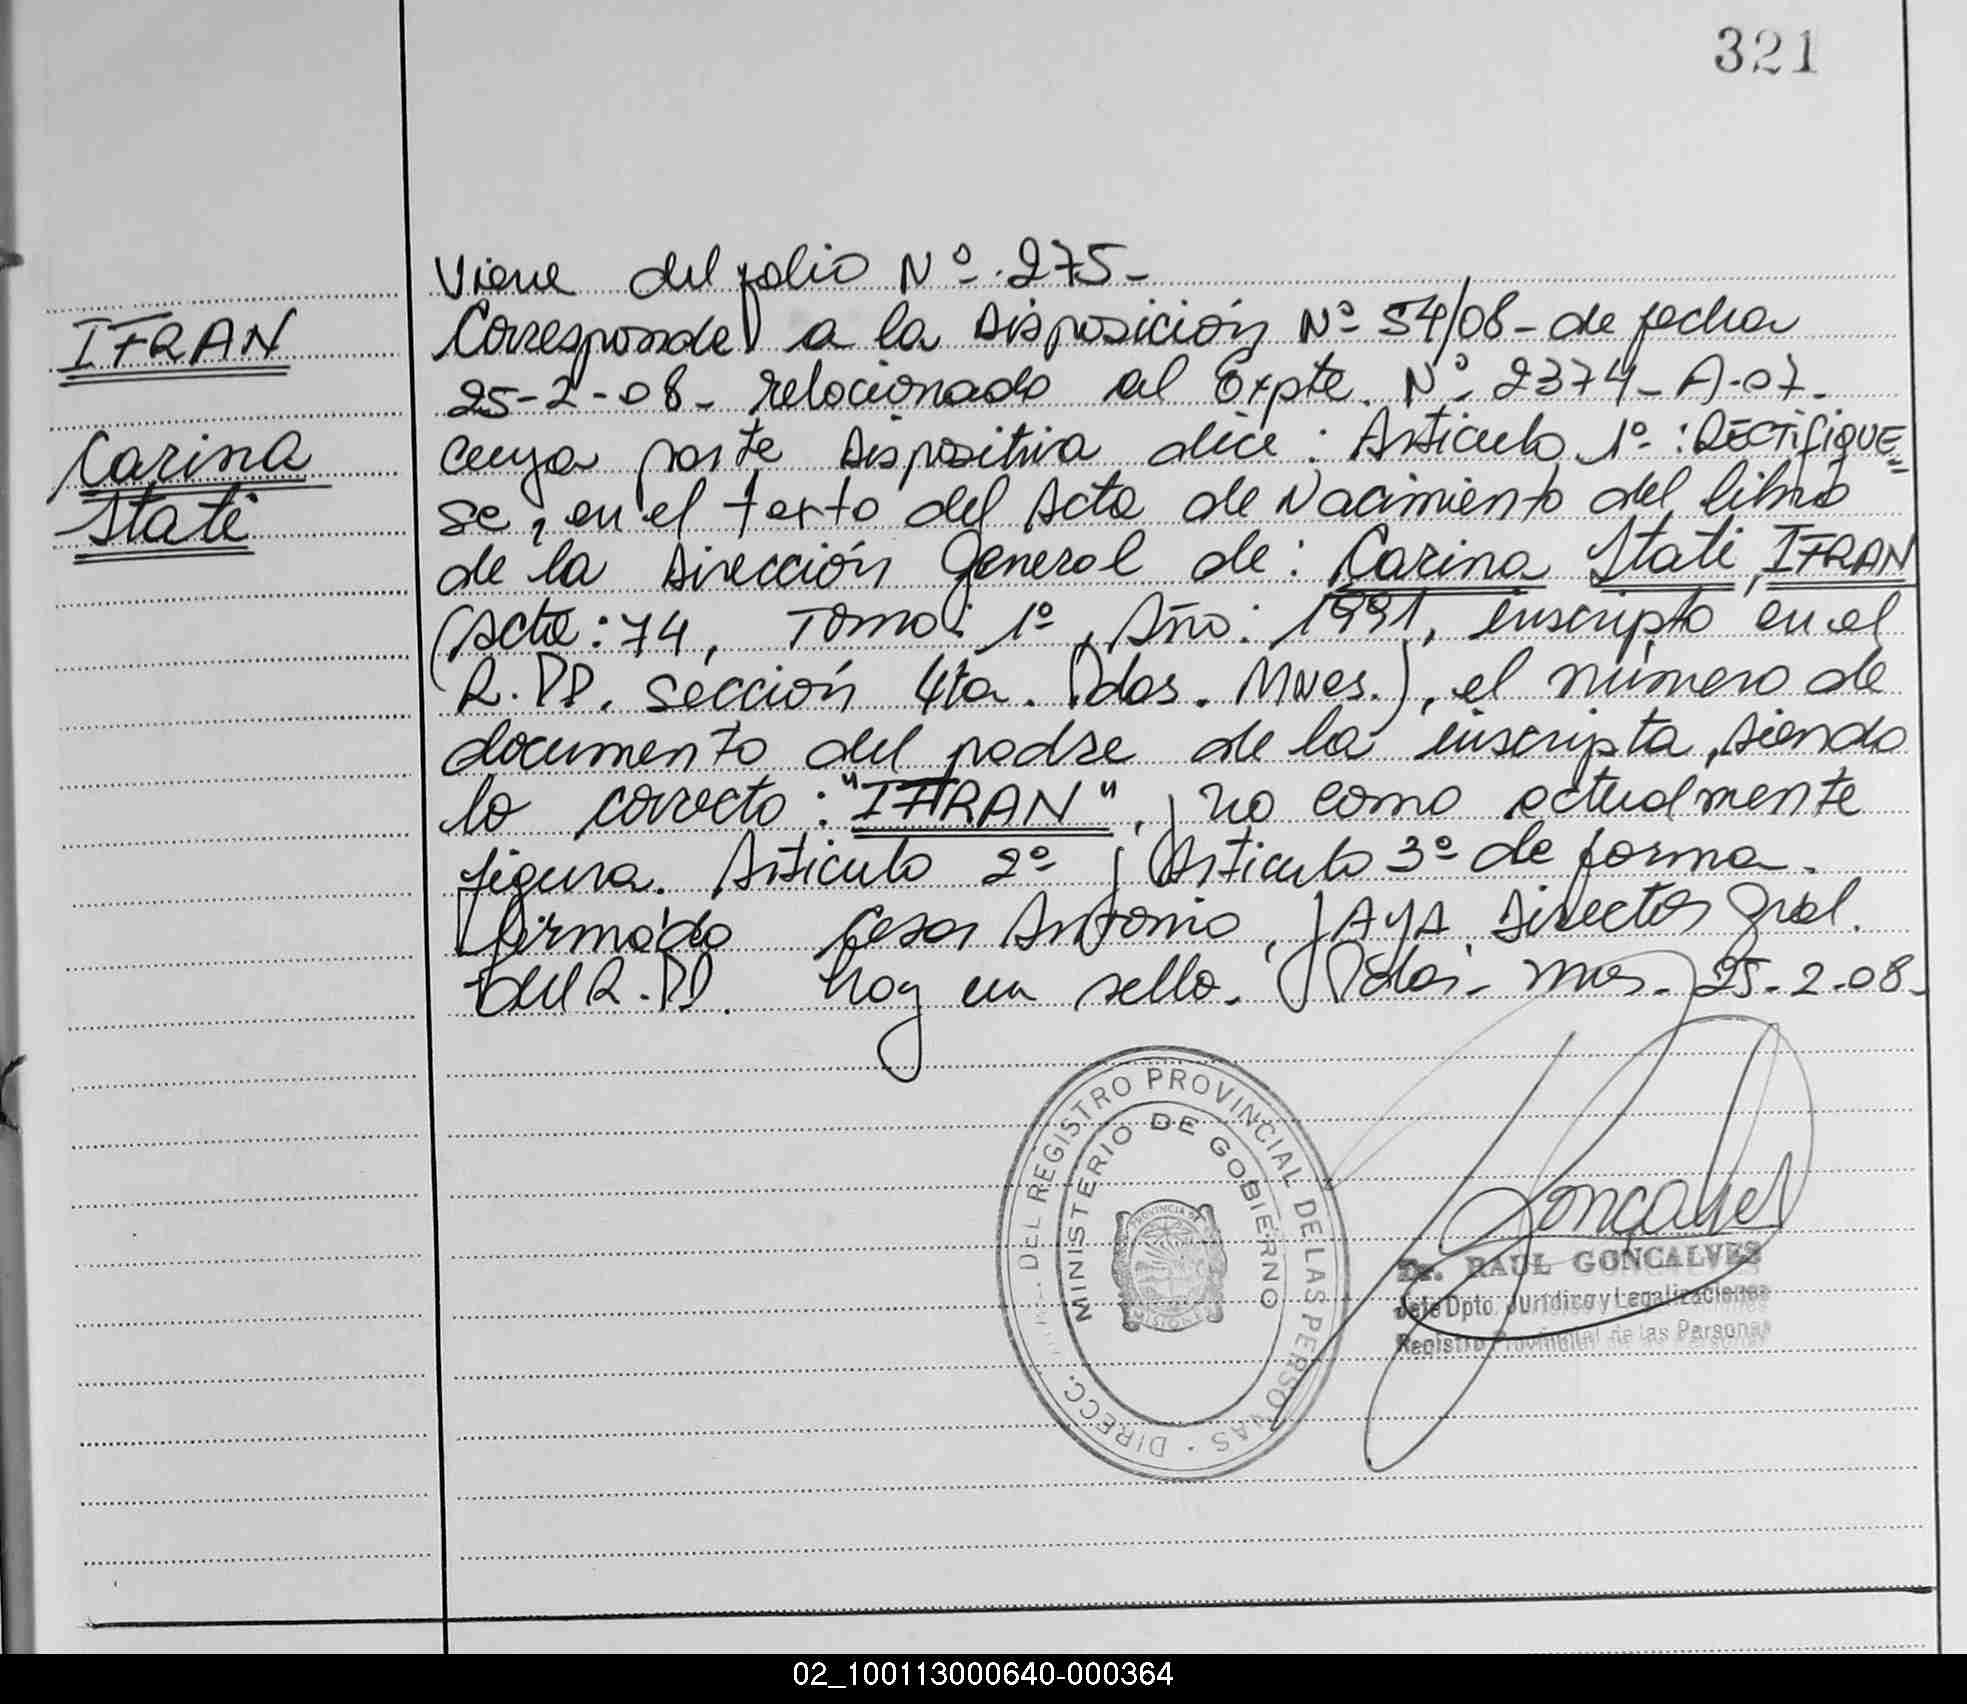 321
Viene del folio Nº 275-
IFRAN
Corresponde a la Disposición Nº 54/08- de fecha
25-2-08- relacionado al Expte. Nº 2374-A-07-
Carina
cuya parte Dispositiva dice: Articulo 1º: RECTIFIQUE=
Stati
se, en el texto del Acta de Nacimiento del libro
de la Dirección General de: Carina Stati IFRAN
(Acta: 74, Tomo: 1º, Año: 1991, inscripto en el
R.PP. Sección 4ta. Pdas. Mnes.), el número de
documento del padre de la inscripta, siendo
lo correcto: "IFRAN", y no como actualmente
figura. Articulo 2º y Articulo 3º de forma.
Firmado Cesar Antonio JAYA Director Gral.
del R.PP. hay un sello. Pdas- Mnes- 25-2-08-
DIRECC. DEL REGISTRO PROVINCIAL DE LAS PERSONAS
MINISTERIO DE GOBIERNO
PROVINCIA DE
MISIONES
Gonçalves
Dr. RAUL GONÇALVES
Jefe Dpto. Jurídico y Legalizaciones
Registro Provincial de las Personas
02_100113000640-000364